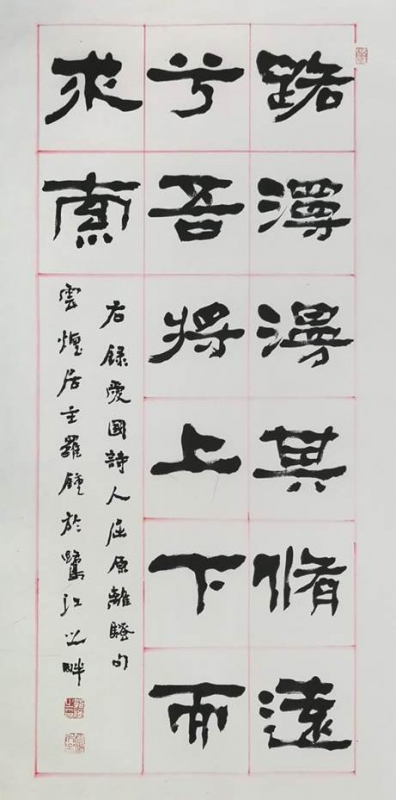 路漫漫其脩遠
兮吾将上下而
求索
右錄愛國詩人屈原離騷句
雲煌居主羅鍾於鷺江之畔